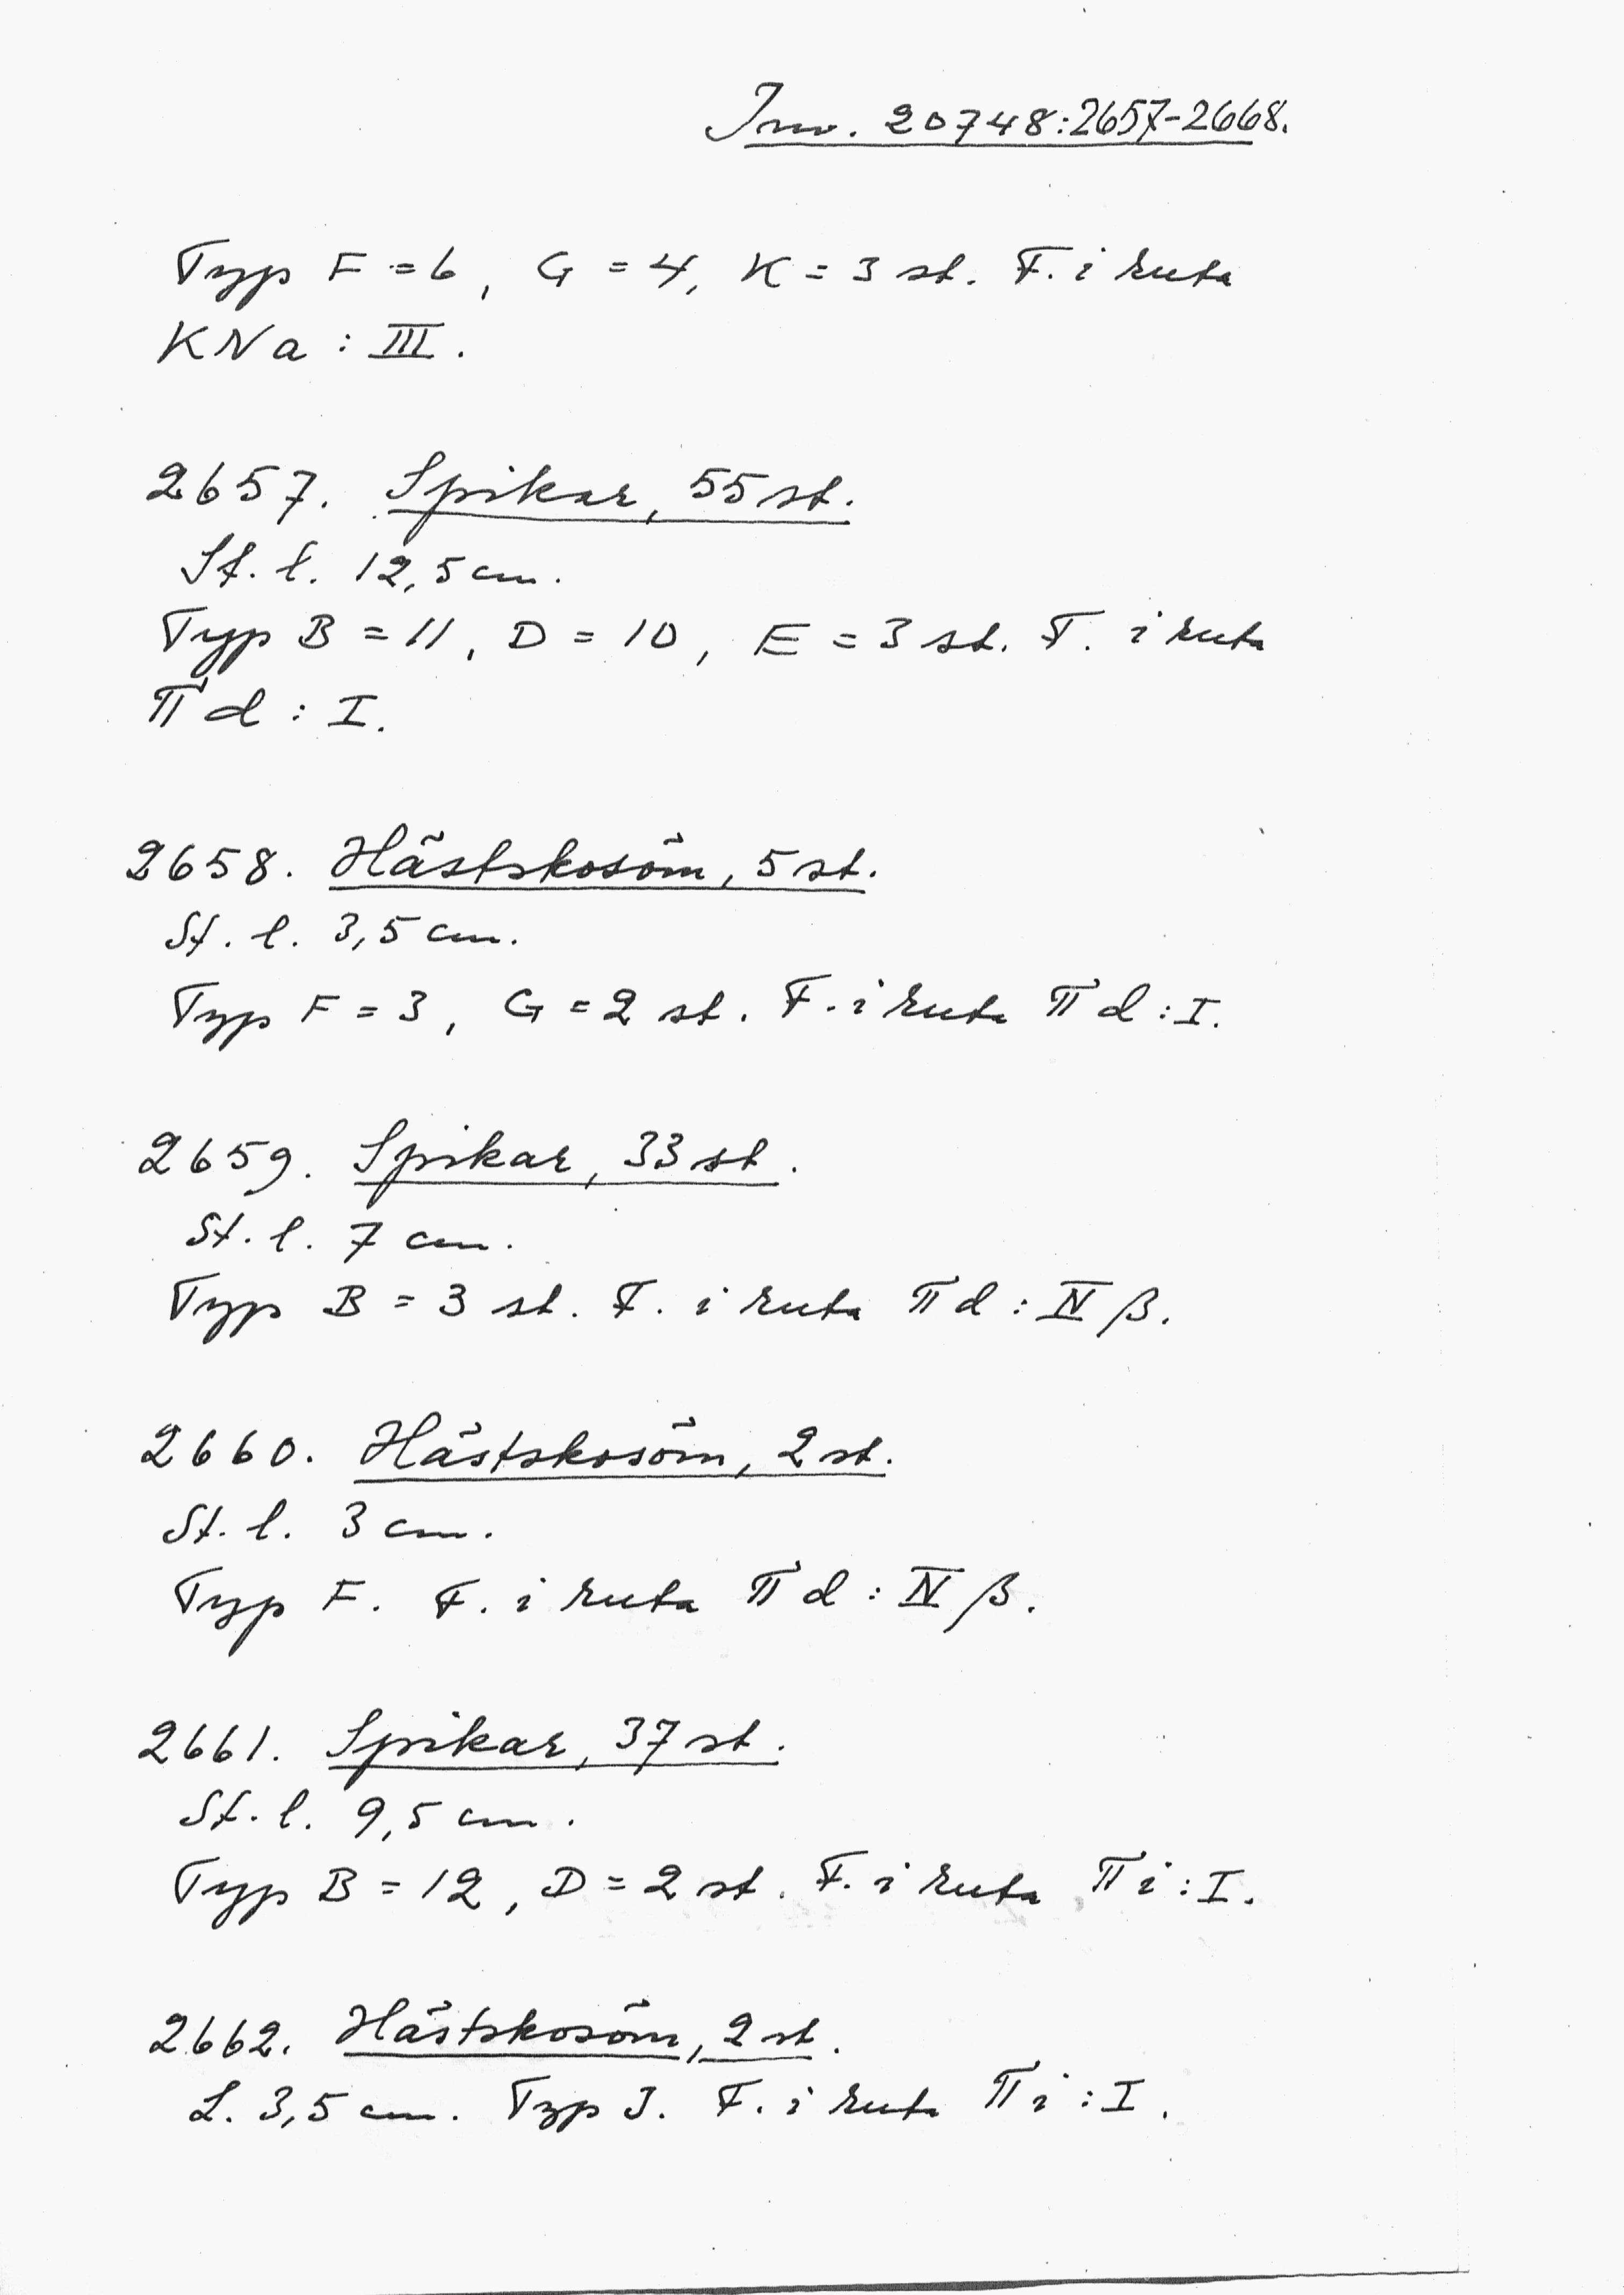 Inv. 20748:2657-2668.
Typ F = 6, G = 4, K = 3 st. F. i ruta
KNa : III.
2657. Spikar, 55 st.
St. l. 12,5 cm.
Typ B = 11, D = 10, E = 3 st. F. i ruta
Πd : I.
2658. Hästskosöm, 5 st.
St. l. 3,5 cm.
Typ F = 3, G = 2 st. F. i ruta Πd : I.
2659. Spikar, 33 st.
St. l. 7 cm.
Typ B = 3 st. F. i ruta Πd : IV β.
2660. Hästskosöm, 2 st.
St. l. 3 cm.
Typ F. F. i ruta Πd : IV β.
2661. Spikar, 37 st.
St. l. 9,5 cm.
Typ B = 12, D = 2 st. F. i ruta Πi : I.
2662. Hästskosöm, 2 st.
L. 3,5 cm. Typ J. F. i ruta Πi : I.